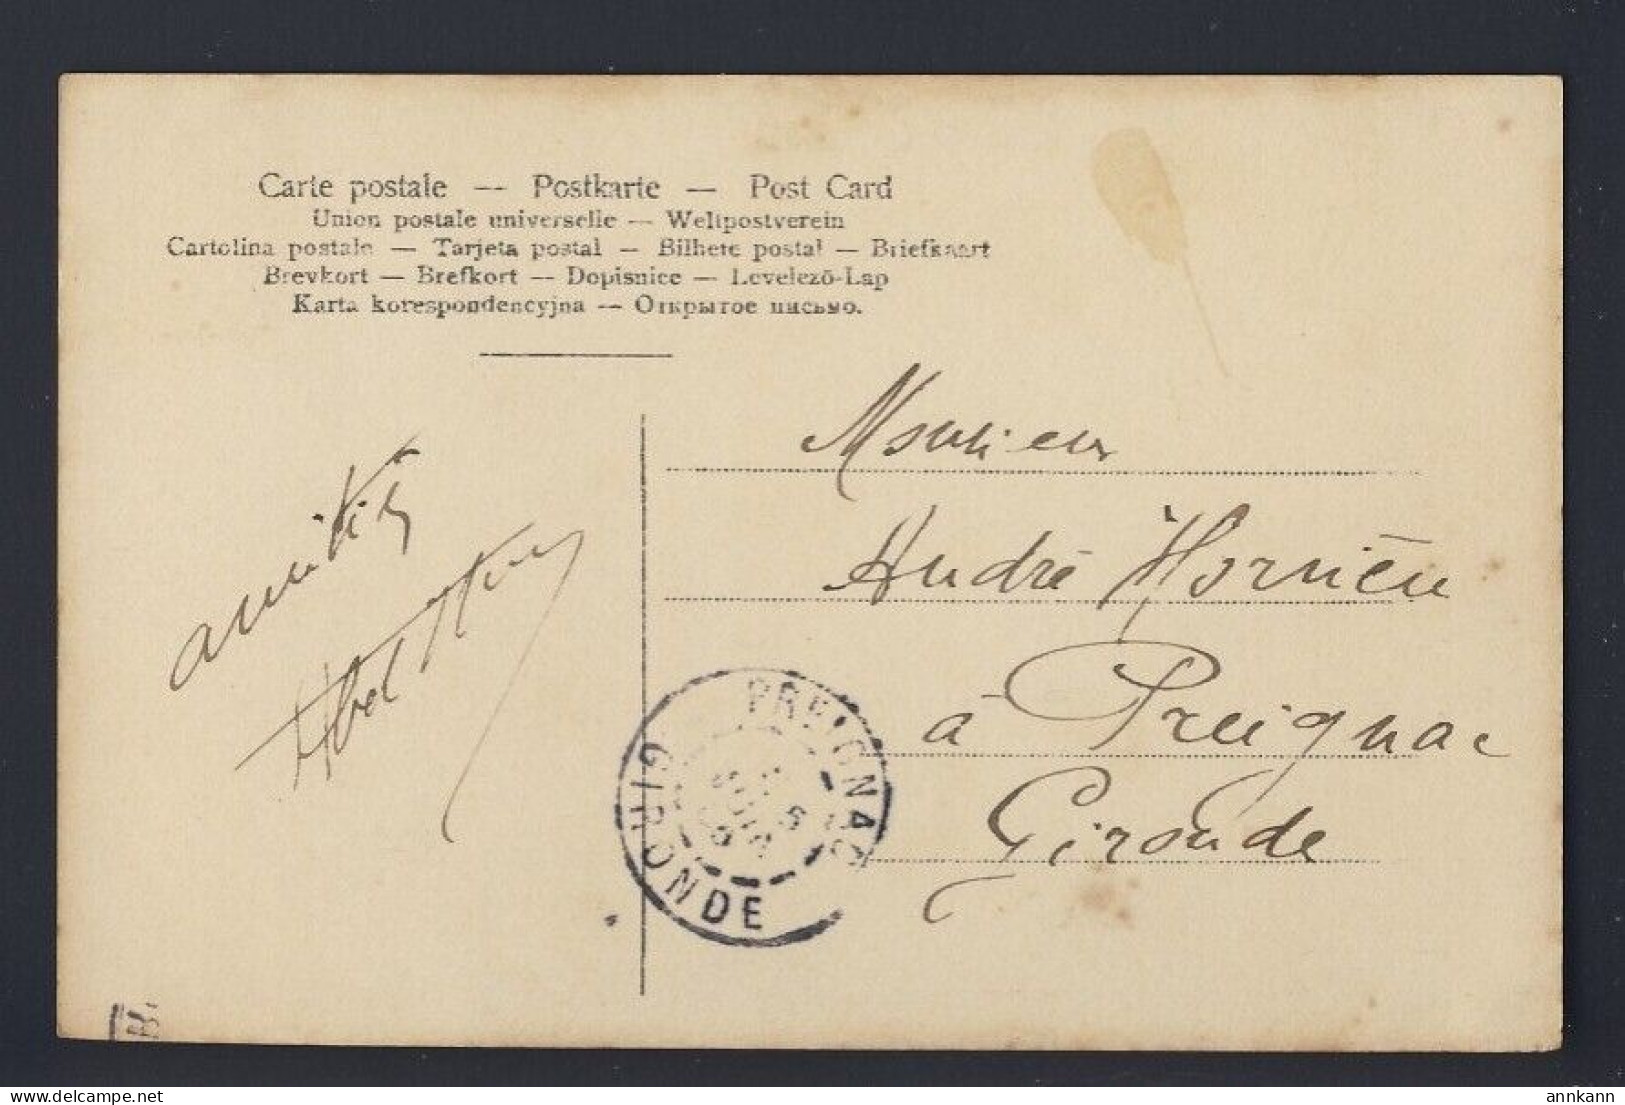 Carte postale — Postkarte — Post Card
Union postale universelle — Weltpostverein
Cartolina postale — Tarjeta postal — Bilhete postal — Briefkaart
Brevkort — Brefkort — Dopisnice — Levelező-Lap
Karta korespondencyjna — Открытое письмо.
amitiés
Abel
Monsieur
André
à Preignac
Gironde
PREIGNAC
GIRONDE
annkann